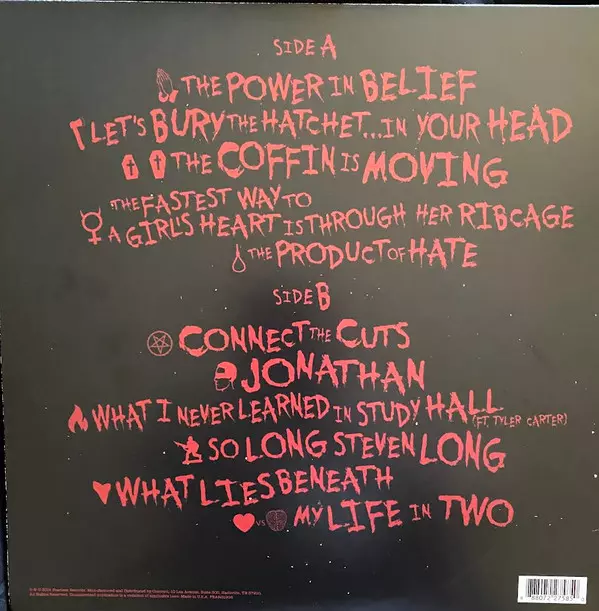 SIDE A
THE POWER IN BELIEF
LET'S BURY THE HATCHET...IN YOUR HEAD
THE COFFIN IS MOVING
THE FASTEST WAY TO
A GIRL'S HEART IS THROUGH HER RIBCAGE
THE PRODUCT OF HATE
SIDE B
CONNECT THE CUTS
JONATHAN
WHAT I NEVER LEARNED IN STUDY HALL (FT. TYLER CARTER)
SO LONG STEVEN LONG
WHAT LIES BENEATH
VS
MY LIFE IN TWO